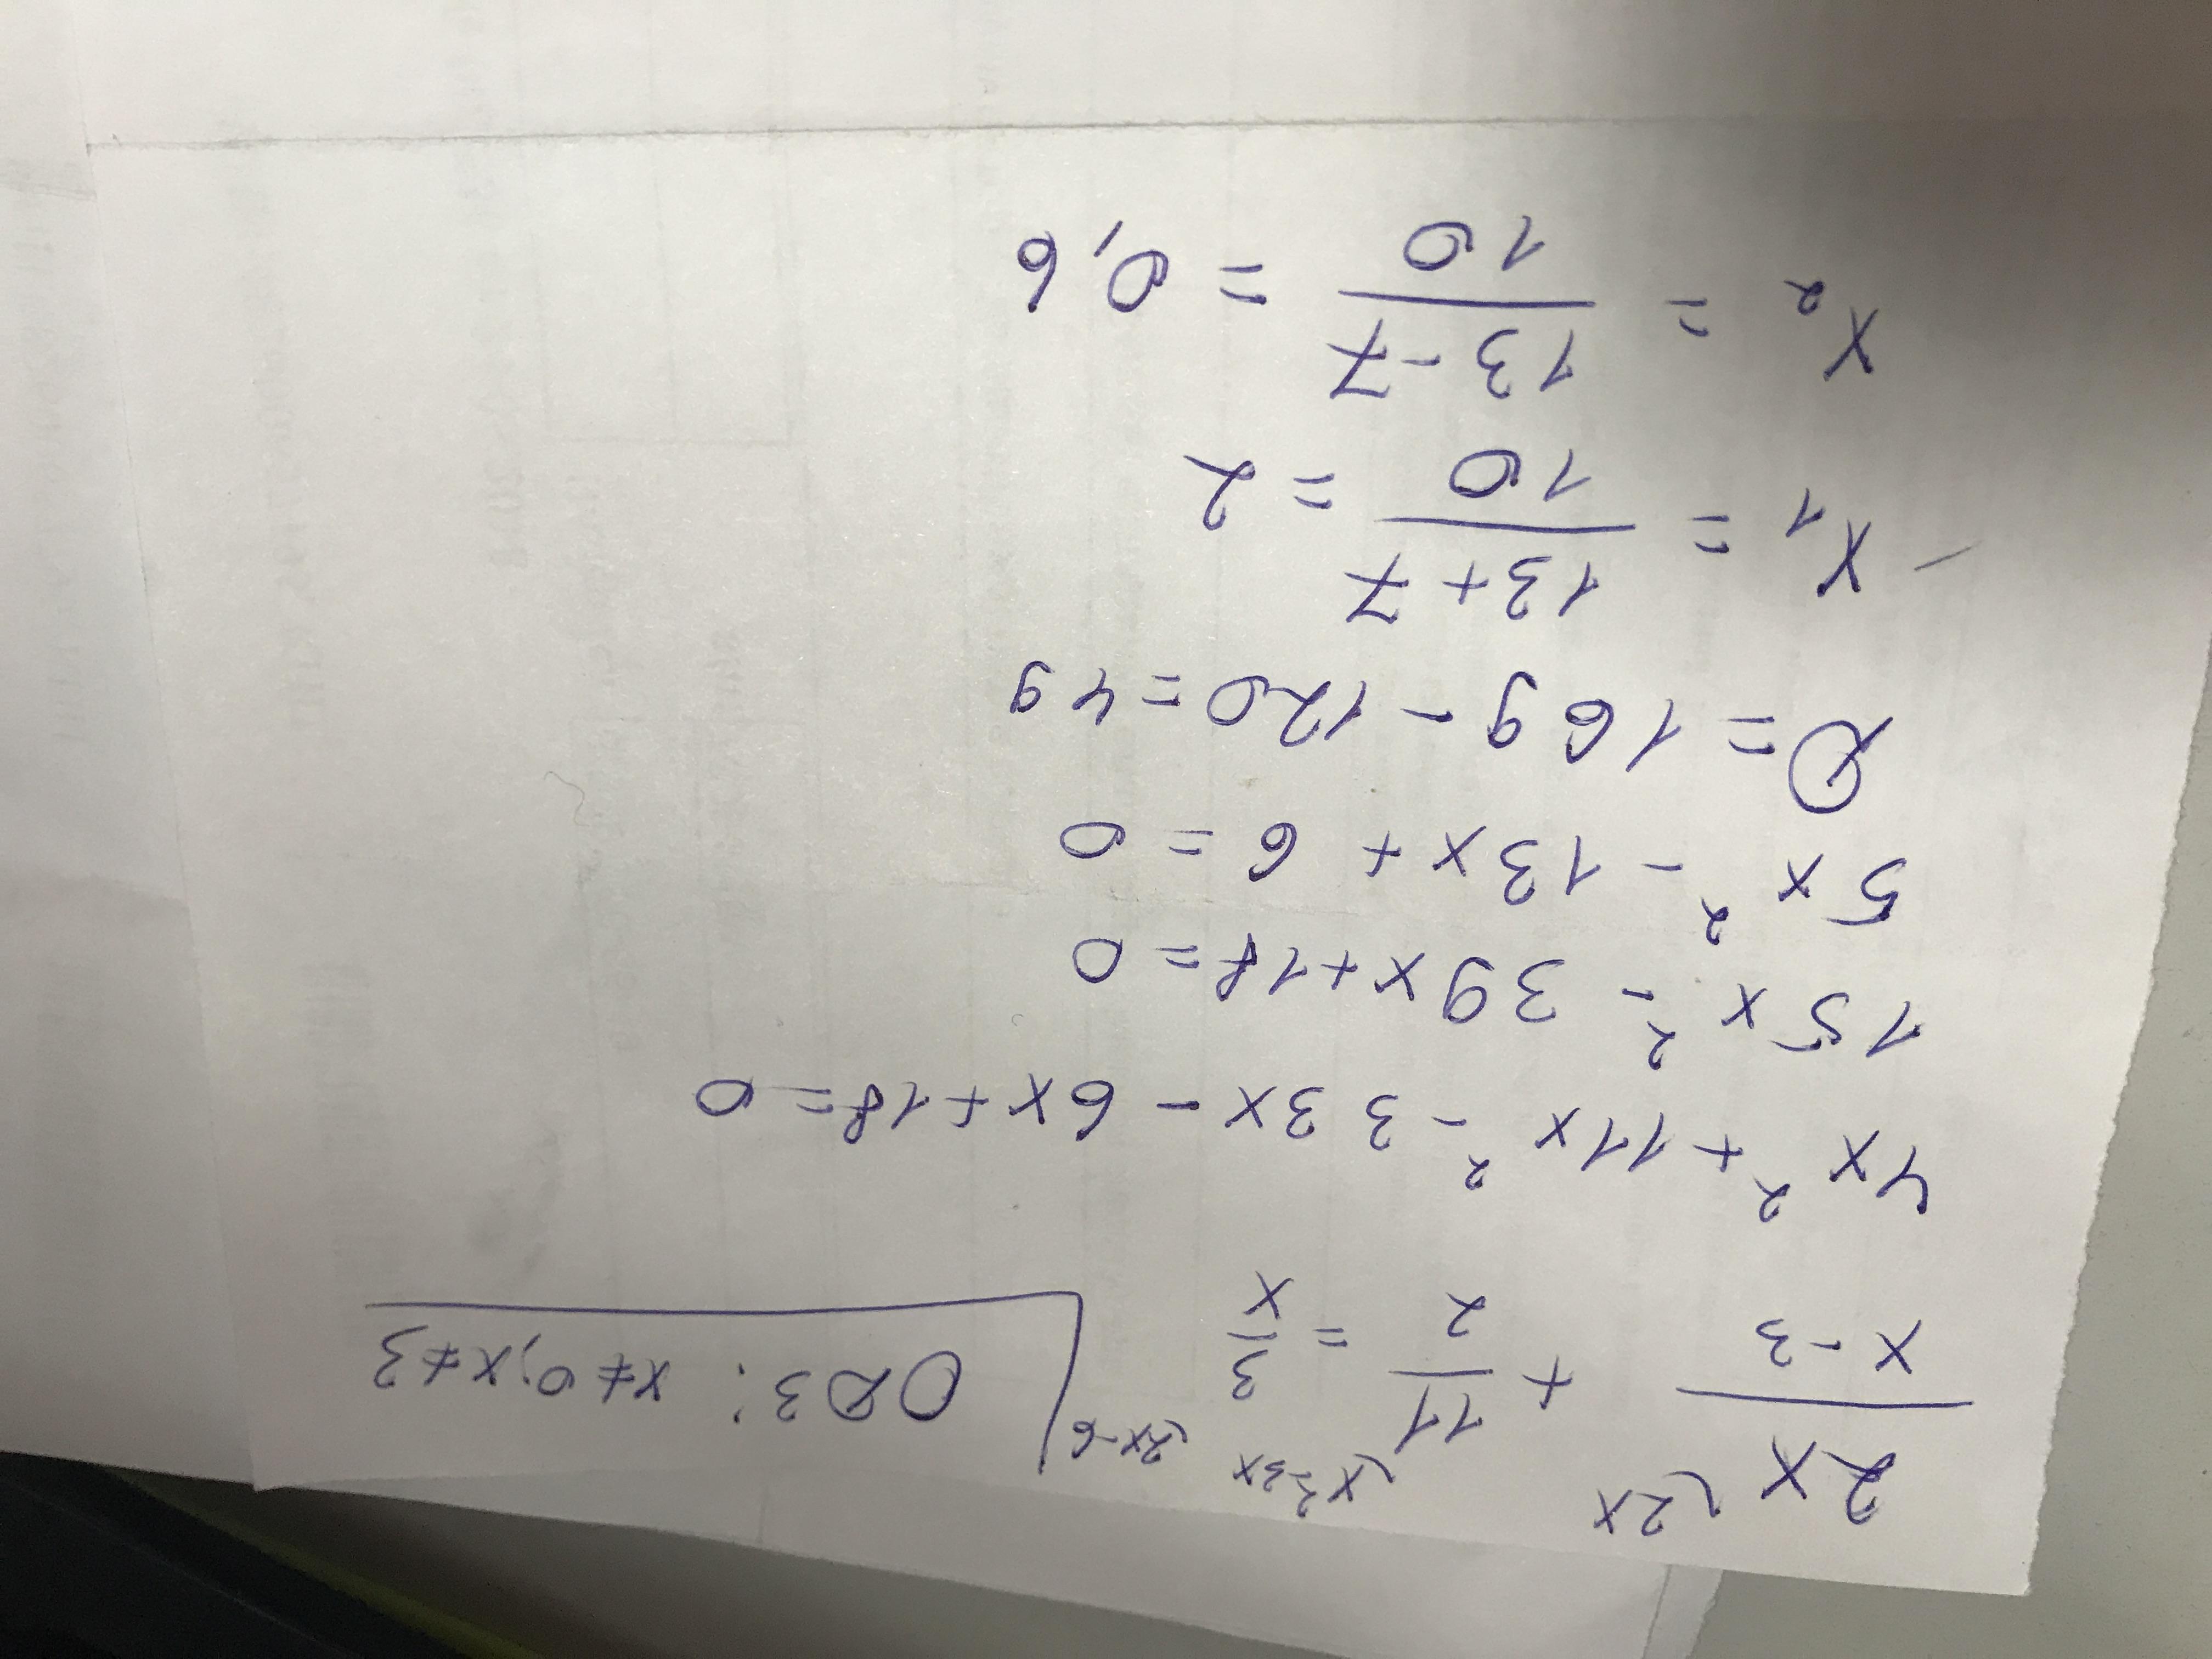 2x⌊2x + 11⌊x²-3x = 3⌊2x-6 | ОДЗ: x≠0, x≠3
x-3 2 x
4x² + 11x² - 33x - 6x + 18 = 0
15x² - 39x + 18 = 0
5x² - 13x + 6 = 0
D = 169 - 120 = 49
x₁ = 13+7 = 2
10
x₂ = 13-7 = 0,6
10